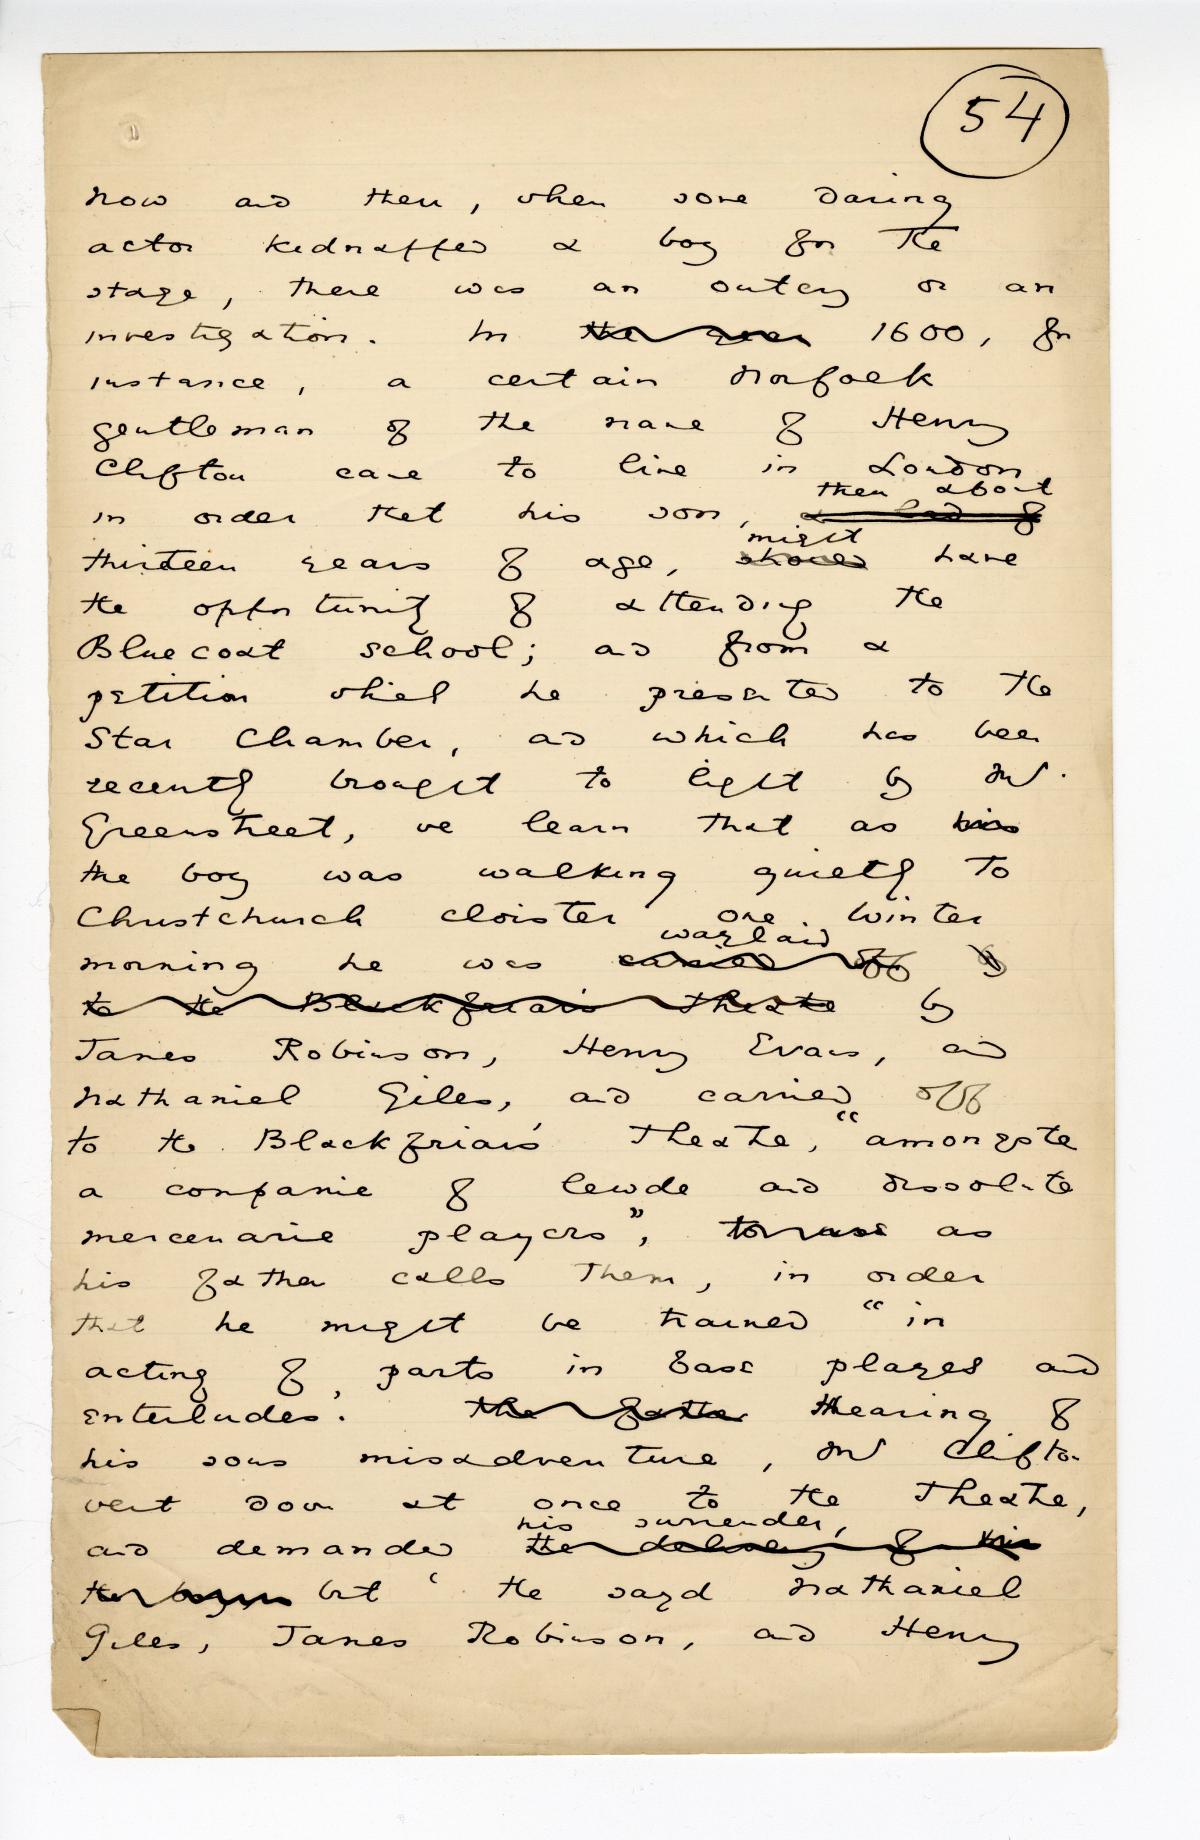 54
now and then, when some daring
actor kidnapped a boy for the
stage, there was an outcry or an
investigation. In the year 1600, for
instance, a certain Norfolk
gentleman of the name of Henry
Clifton came to live in London
then about
in order that his son, a lad of
might
thirteen years of age, should have
the opportunity of attending the
Bluecoat school; and from a
petition which he presented to the
Star Chamber, and which has been
recently brought to light by Mr.
Greenstreet, we learn that as his
the boy was walking quietly to
Christchurch cloister one winter
waylaid
morning he was carried off by
to the Blackfriars Theatre by
James Robinson, Henry Evans, and
Nathaniel Giles, and carried off
to the Blackfriars Theatre, "amongste
a companie of lewde and dissolute
mercenarie players", as
his father calls them, in order
that he might be trained "in
acting of parts in base playes and
enterludes. the father Hearing of
his sons misadventure, Mr Clifton
went down at once to the Theatre,
his surrender,
and demanded the delivery of his
the boy but ' the sayd Nathaniel
Giles, James Robinson, and Henry